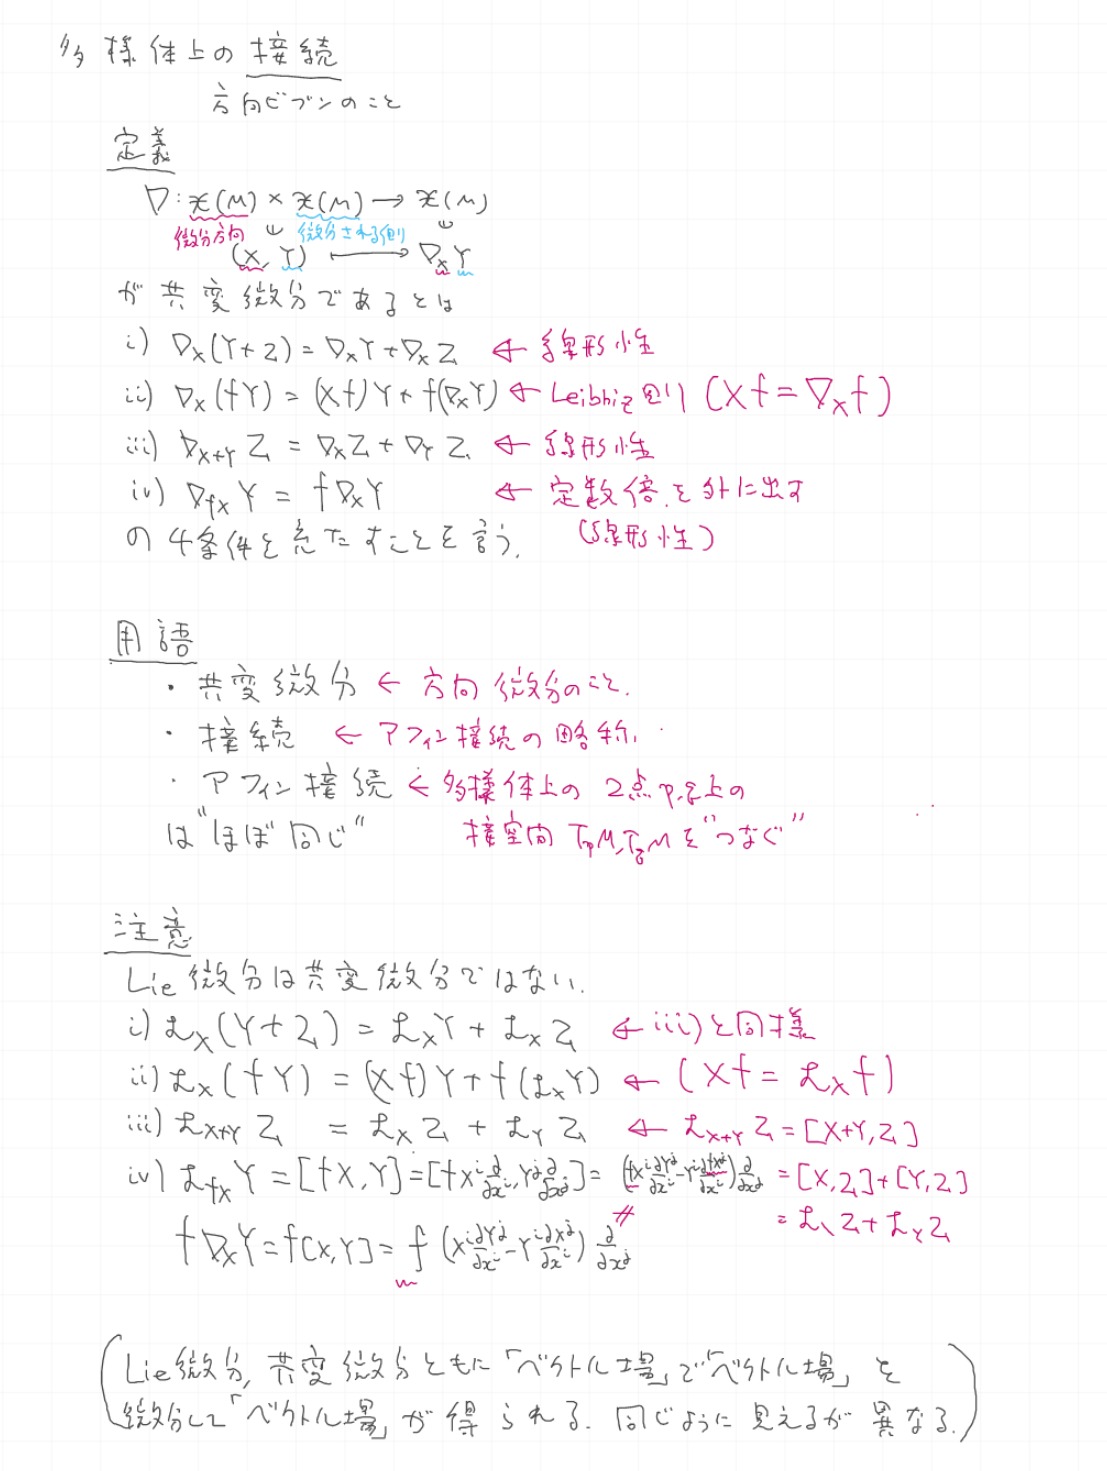 多様体上の接続
方向ビブンのこと
定義
∇: 𝔛(M) × 𝔛(M) → 𝔛(M)
微分方向 ∪ 微分される側 ∪
(X, Y) ⟼ ∇_X Y
が共変微分であるとは
i) ∇_X(Y+Z) = ∇_X Y + ∇_X Z ← 線形性
ii) ∇_X(fY) = (Xf)Y + f(∇_X Y) ← Leibniz則 (Xf = ∇_X f)
iii) ∇_{X+Y} Z = ∇_X Z + ∇_Y Z ← 線形性
iv) ∇_{fX} Y = f∇_X Y ← 定数倍を外に出す
の4条件をみたすことを言う. (線形性)
用語
・共変微分 ← 方向微分のこと.
・接続 ← アフィン接続の略称.
・アフィン接続 ← 多様体上の2点p,q上の
は"ほぼ同じ" 接空間 T_pM, T_qM を"つなぐ"
注意
Lie微分は共変微分ではない.
i) ℒ_X(Y+Z) = ℒ_X Y + ℒ_X Z ← iii)と同様
ii) ℒ_X(fY) = (Xf)Y + f(ℒ_X Y) ← (Xf = ℒ_X f)
iii) ℒ_{X+Y} Z = ℒ_X Z + ℒ_Y Z ← ℒ_{X+Y} Z = [X+Y, Z]
iv) ℒ_{fX} Y = [fX, Y] = [fX^i ∂/∂x^i, Y^j ∂/∂x^j] = (fX^i ∂Y^j/∂x^i - Y^i ∂fX^j/∂x^i) ∂/∂x^j = [X, Z] + [Y, Z]
∦ = ℒ_X Z + ℒ_Y Z
f∇_X Y = f[X, Y] = f (X^i ∂Y^j/∂x^i - Y^i ∂X^j/∂x^i) ∂/∂x^j
(Lie微分, 共変微分ともに「ベクトル場」で「ベクトル場」を
微分して「ベクトル場」が得られる. 同じように見えるが異なる.)